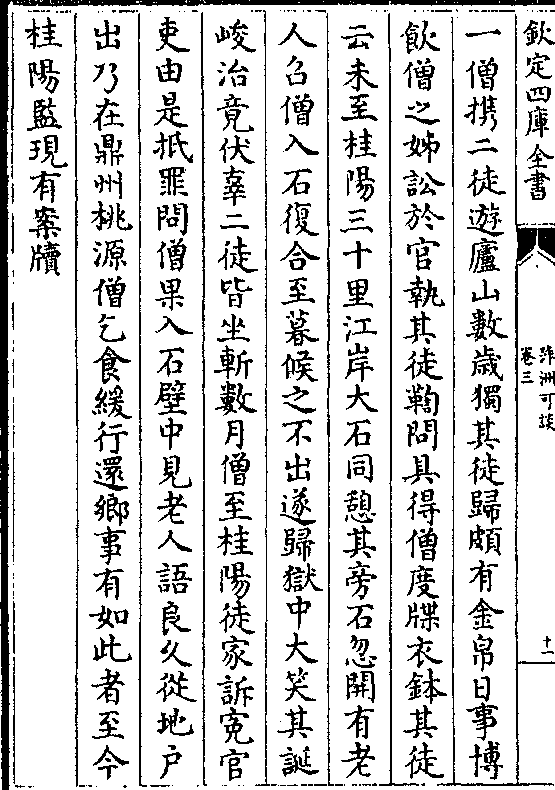 欽定四庫全書
萍洲可談
卷三
十一
一僧携二徒遊廬山數歳獨其徒歸頗有金帛日事博
飲僧之姊訟於官執其徒鞫問具得僧度牒衣鉢其徒
云未至桂陽三十里江岸大石同憩其旁石忽開有老
人召僧入石復合至暮候之不出遂歸獄中大笑其誕
峻治竟伏辜二徒皆坐斬數月僧至桂陽徒家訴寃官
吏由是抵罪問僧果入石壁中見老人語良久從地户
出乃在鼎州桃源僧乞食緩行還鄉事有如此者至今
桂陽監現有案牘